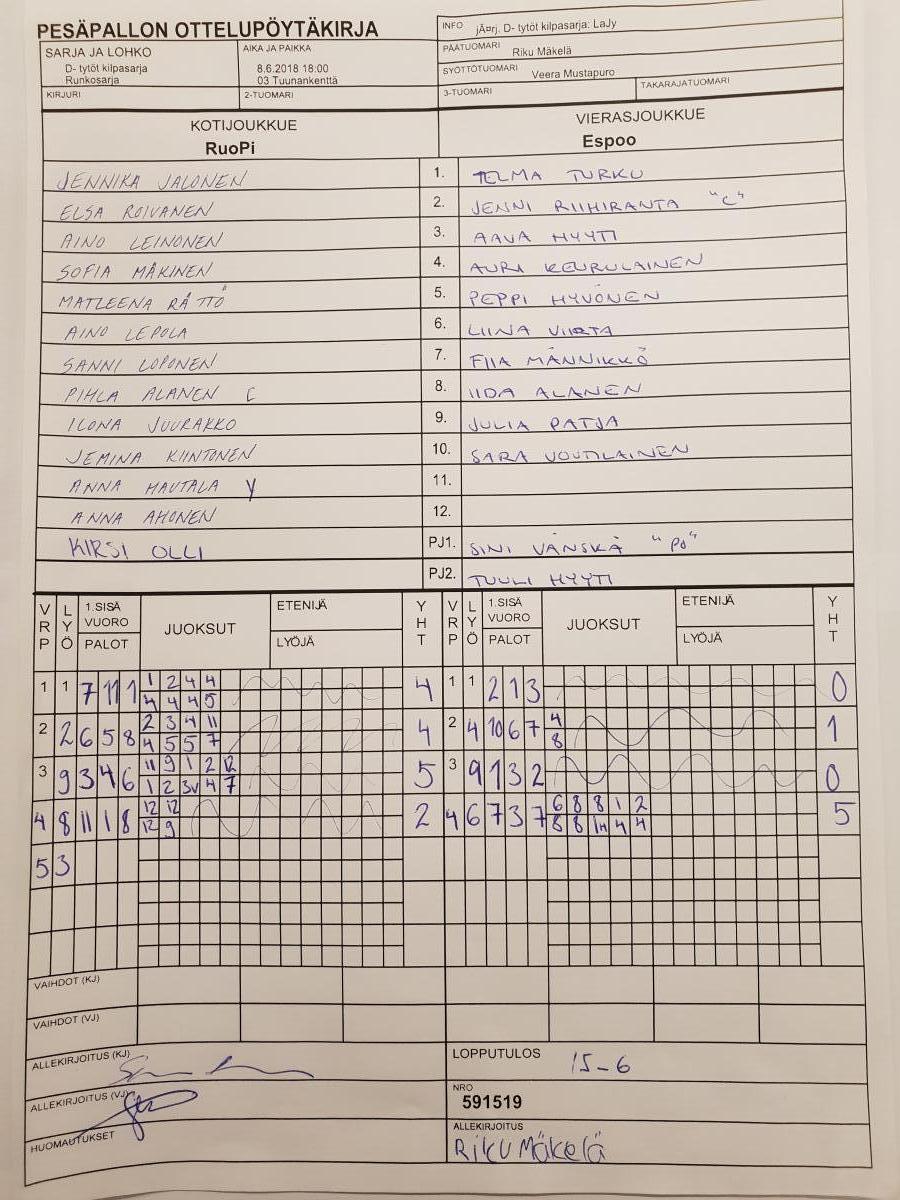 PESÄPALLON OTTELUPÖYTÄKIRJA
INFO jÃ¤rj. D- tytöt kilpasarja: LaJy
SARJA JA LOHKO
D- tytöt kilpasarja
Runkosarja
AIKA JA PAIKKA
8.6.2018 18:00
03 Tuunankenttä
PÄÄTUOMARI Riku Mäkelä
SYÖTTÖTUOMARI Veera Mustapuro
KIRJURI 2-TUOMARI 3-TUOMARI TAKARAJATUOMARI
KOTIJOUKKUE VIERASJOUKKUE
RuoPi Espoo
JENNIKA JALONEN 1. TELMA TURKU
ELSA ROIVANEN 2. JENNI RIIHIRANTA "C"
AINO LEINONEN 3. AAVA HYYTI
SOFIA MÄKINEN 4. AURI KEURULAINEN
MATLEENA RÄTTÖ 5. PEPPI HYVÖNEN
AINO LEPOLA 6. LIINA VIIRTA
SANNI LOPONEN 7. FIIA MÄNNIKKÖ
PIHLA ALANEN C 8. IIDA ALANEN
ILONA JUURAKKO 9. JULIA PATJA
JEMINA KIINTONEN 10. SARA VOUTILAINEN
ANNA HAUTALA Y 11.
ANNA AHONEN 12.
KIRSI OLLI PJ1. SINI VÄNSKÄ "PO"
PJ2. TUULI HYYTI
VRP LYÖ 1.SISÄ VUORO PALOT JUOKSUT ETENIJÄ LYÖJÄ YHT VRP LYÖ 1.SISÄ VUORO PALOT JUOKSUT ETENIJÄ LYÖJÄ YHT
1 1 7 11 1 1 2 4 4 4 1 1 2 1 3 0
4 4 4 5
2 2 6 5 8 2 3 4 11 4 2 4 10 6 7 4 1
4 5 5 7 8
3 9 3 4 6 11 9 1 2 12 5 3 9 1 3 2 0
1 2 3V 4 7
4 8 11 1 8 12 12 2 4 6 7 3 7 6 8 8 1 2 5
12 9 8 8 4 4
5 3
VAIHDOT (KJ)
VAIHDOT (VJ)
ALLEKIRJOITUS (KJ)
LOPPUTULOS 15-6
ALLEKIRJOITUS (VJ)
NRO
591519
HUOMAUTUKSET
ALLEKIRJOITUS
Riku Mäkelä